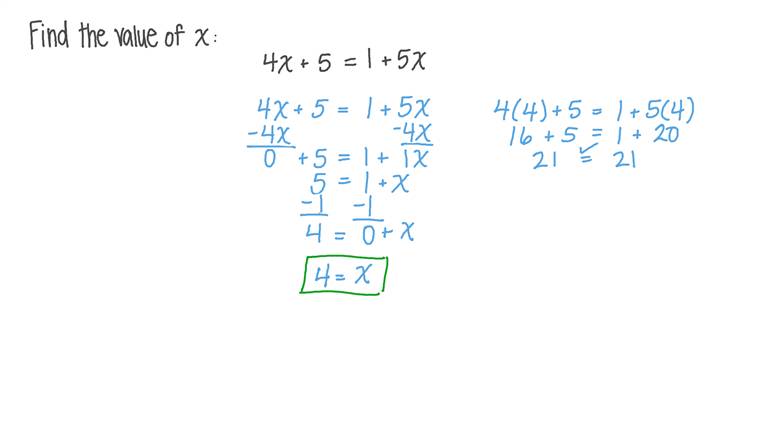 Find the value of x:
4x + 5 = 1 + 5x
4x + 5 = 1 + 5x
-4x -4x
0 + 5 = 1 + 1x
5 = 1 + x
-1 -1
4 = 0 + x
4 = x
4(4) + 5 = 1 + 5(4)
16 + 5 = 1 + 20
21 = 21
✓